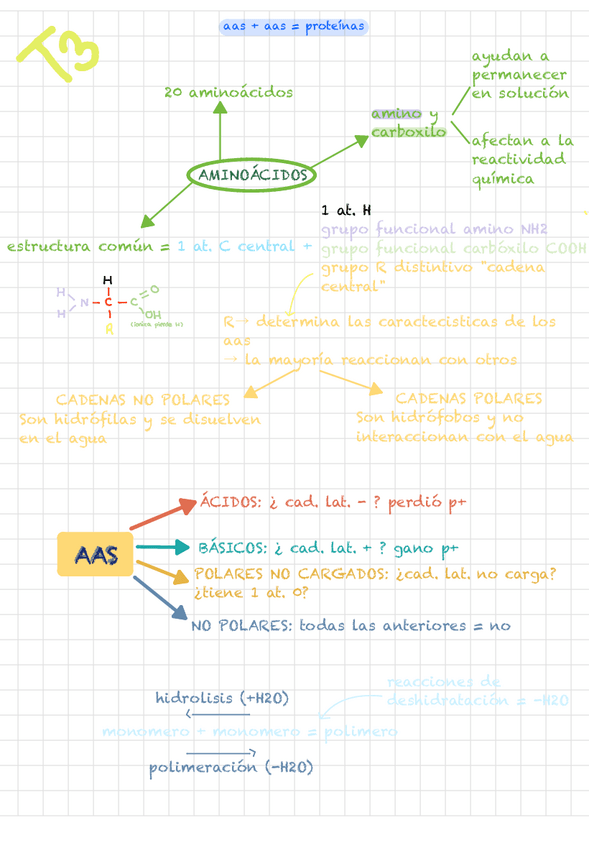 aas + aas = proteínas
T3
ayudan a
permanecer
en solución
20 aminoácidos
amino y
carboxilo
afectan a la
reactividad
química
AMINOÁCIDOS
1 at. H
estructura común = 1 at. C central +
grupo funcional amino NH2
grupo funcional carbóxilo COOH
grupo R distintivo "cadena
central"
H
H
N
H
C
R
C
O
OH
R→ determina las caractecisticas de los
aas
→ la mayoría reaccionan con otros
CADENAS NO POLARES
Son hidrófilas y se disuelven
en el agua
CADENAS POLARES
Son hidrófobos y no
interaccionan con el agua
AAS
ÁCIDOS: ¿ cad. lat. - ? perdió p+
BÁSICOS: ¿ cad. lat. + ? gano p+
POLARES NO CARGADOS: ¿cad. lat. no carga?
¿tiene 1 at. O?
NO POLARES: todas las anteriores = no
reacciones de
deshidratación = -H2O
hidrolisis (+H2O)
monomero + monomero = polimero
polimeración (-H2O)